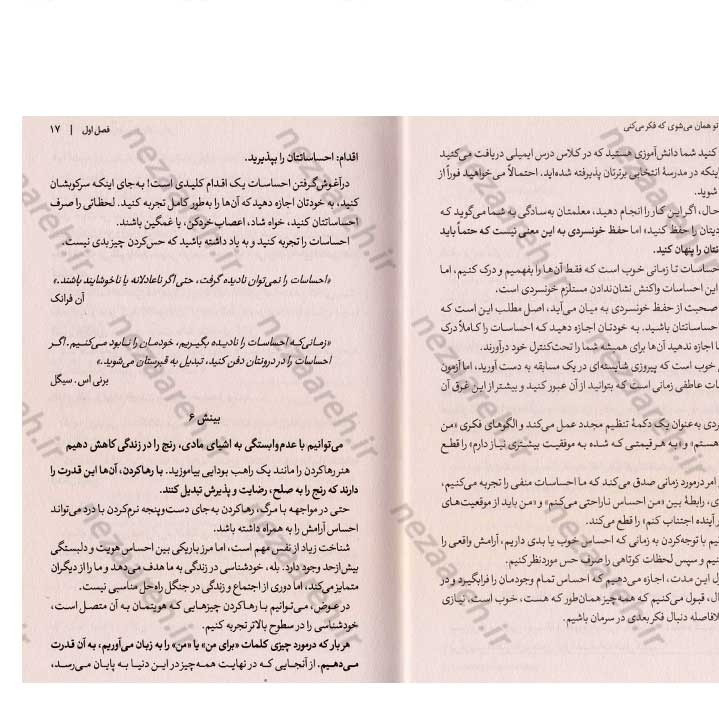 تو همان می‌شوی که فکر می‌کنی
کنید شما دانش‌آموزی هستید که در کلاس درس ایمیلی دریافت می‌کنید
اینکه در مدرسهٔ انتخابی برترتان پذیرفته شده‌اید. احتمالاً می‌خواهید فوراً از
شوید.
حال، اگر این کار را انجام دهید، معلمتان به‌سادگی به شما می‌گوید که
دیتان را حفظ کنید؛ اما حفظ خونسردی به این معنی نیست که حتماً باید
تتان را پنهان کنید.
حساسات تا زمانی خوب است که فقط آن‌ها را بفهمیم و درک کنیم، اما
این احساسات واکنش نشان‌ندادن مستلزم خونسردی است.
صحبت از حفظ خونسردی به میان می‌آید، اصل مطلب این است که
حساساتتان باشید. به خودتان اجازه دهید که احساسات را کاملاً درک
ا اجازه ندهید آن‌ها برای همیشه شما را تحت‌کنترل خود درآورند.
خوب است که پیروزی شایسته‌ای در یک مسابقه به دست آورید، اما آزمون
ات عاطفی زمانی است که بتوانید از آن عبور کنید و بیشتر از این غرق آن
ردی به‌عنوان یک دکمهٔ تنظیم مجدد عمل می‌کند و الگوهای فکری «من
هستم» و «به هر قیمتی که شده به موفقیت بیشتری نیاز دارم» را قطع
امر درمورد زمانی صدق می‌کند که ما احساسات منفی را تجربه می‌کنیم،
ی، رابطهٔ بین «من احساس ناراحتی می‌کنم» و «من باید از موقعیت‌های
ر آینده اجتناب کنم» را قطع می‌کند.
نیم با توجه‌کردن به زمانی که احساس خوب یا بدی داریم، آرامش واقعی را
کنیم و سپس لحظات کوتاهی را صرف حس موردنظر کنیم.
ل این مدت، اجازه می‌دهیم که احساس تمام وجودمان را فرابگیرد و در
ال، قبول می‌کنیم که همه‌چیز همان‌طور که هست، خوب است. نیازی
لافاصله دنبال فکر بعدی در سرمان باشیم.
فصل اول | ۱۷
اقدام: احساساتتان را بپذیرید.
درآغوش‌گرفتن احساسات یک اقدام کلیدی است! به‌جای اینکه سرکوبشان
کنید، به خودتان اجازه دهید که آن‌ها را به‌طور کامل تجربه کنید. لحظاتی را صرف
احساساتتان کنید، خواه شاد، اعصاب‌خردکن، یا غمگین باشند.
احساسات را تجربه کنید و به یاد داشته باشید که حس‌کردن چیز بدی نیست.
«احساسات را نمی‌توان نادیده گرفت، حتی اگر ناعادلانه یا ناخوشایند باشند.»
آن فرانک
«زمانی‌که احساسات را نادیده بگیریم، خودمان را نابود می‌کنیم. اگر
احساسات را در درونتان دفن کنید، تبدیل به قبرستان می‌شوید.»
برنی اس. سیگل
بینش ۶
می‌توانیم با عدم‌وابستگی به اشیای مادی، رنج را در زندگی کاهش دهیم
هنر رهاکردن را مانند یک راهب بودایی بیاموزید. با رهاکردن، آن‌ها این قدرت را
دارند که رنج را به صلح، رضایت و پذیرش تبدیل کنند.
حتی در مواجهه با مرگ، رهاکردن به‌جای دست‌وپنجه نرم‌کردن با درد می‌تواند
احساس آرامش را به همراه داشته باشد.
شناخت زیاد از نفس مهم است، اما مرز باریکی بین احساس هویت و دلبستگی
بیش‌ازحد وجود دارد. بله، خودشناسی در زندگی به ما هدف می‌دهد و ما را از دیگران
متمایز می‌کند، اما دوری از اجتماع و زندگی در جنگل راه‌حل مناسبی نیست.
در عوض، می‌توانیم با رهاکردن چیزهایی که هویتمان به آن متصل است،
خودشناسی را در سطوح بالاتر تجربه کنیم.
هر بار که درمورد چیزی کلمات «برای من» یا «من» را به زبان می‌آوریم، به آن قدرت
می‌دهیم. از آنجایی که در نهایت همه‌چیز در این دنیا به پایان می‌رسد،
nezaaareh.ir